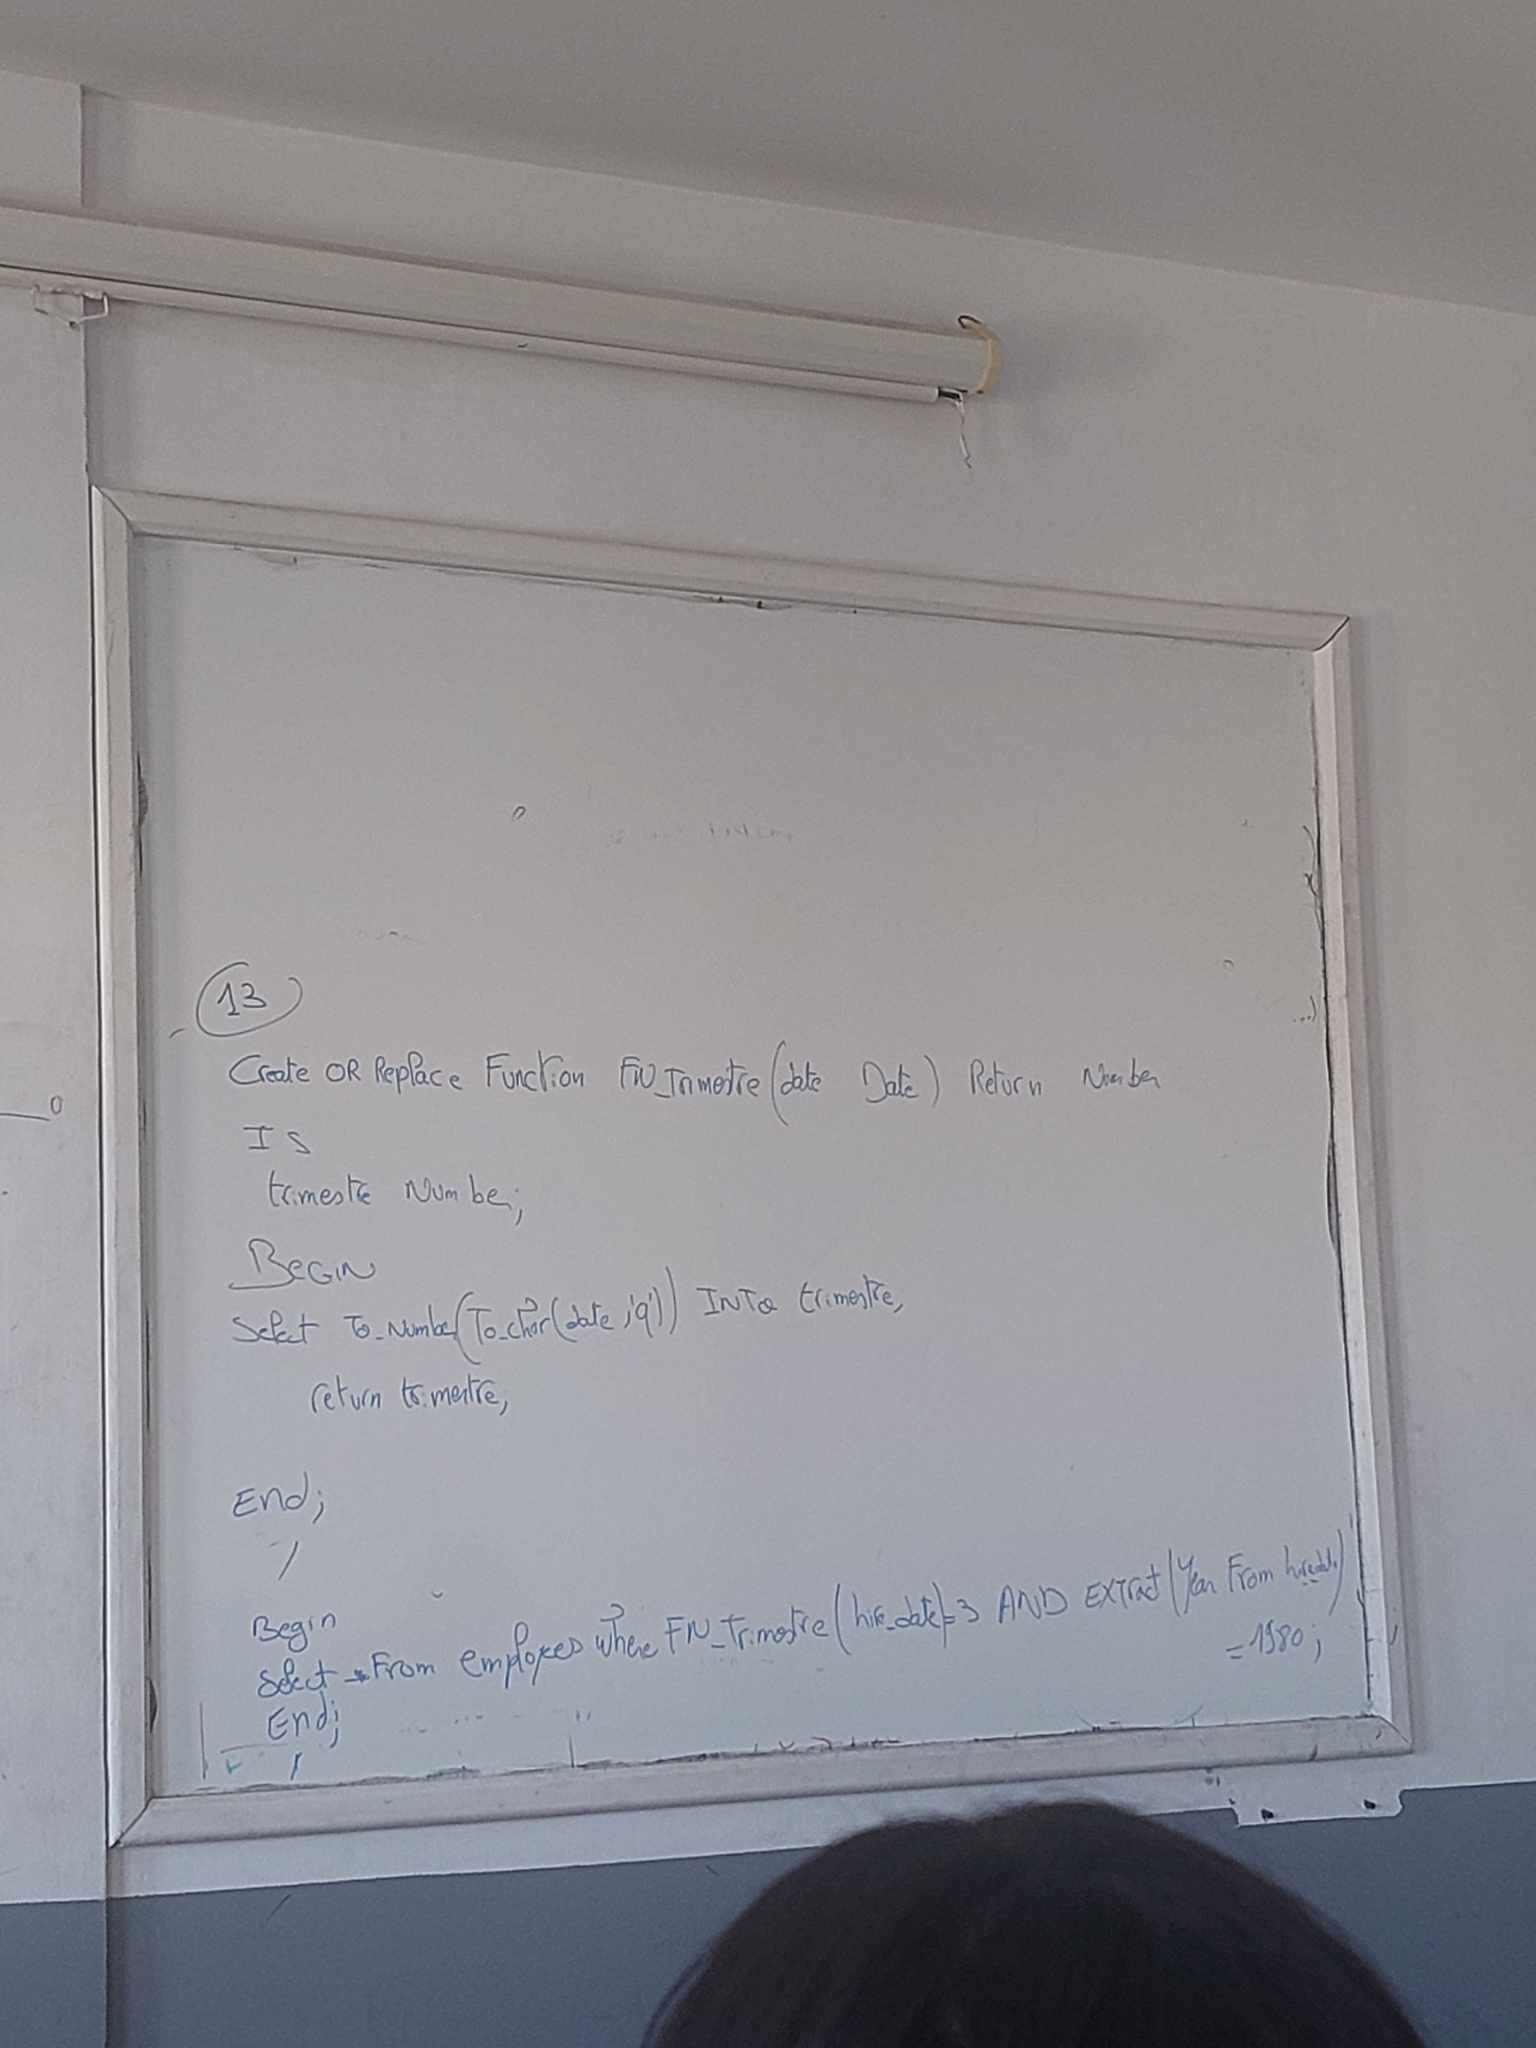 13
Create OR Replace Function FN_Trimestre (date Date) Return Number
IS
trimestre Number;
BEGIN
Select To_Number(To_char(date,'q')) INTO trimestre,
return trimestre,
End;
/
Begin
Select * From employees where FN_Trimestre (hire_date)=3 AND EXTract (Year From hiredate)
=1980;
End;
/